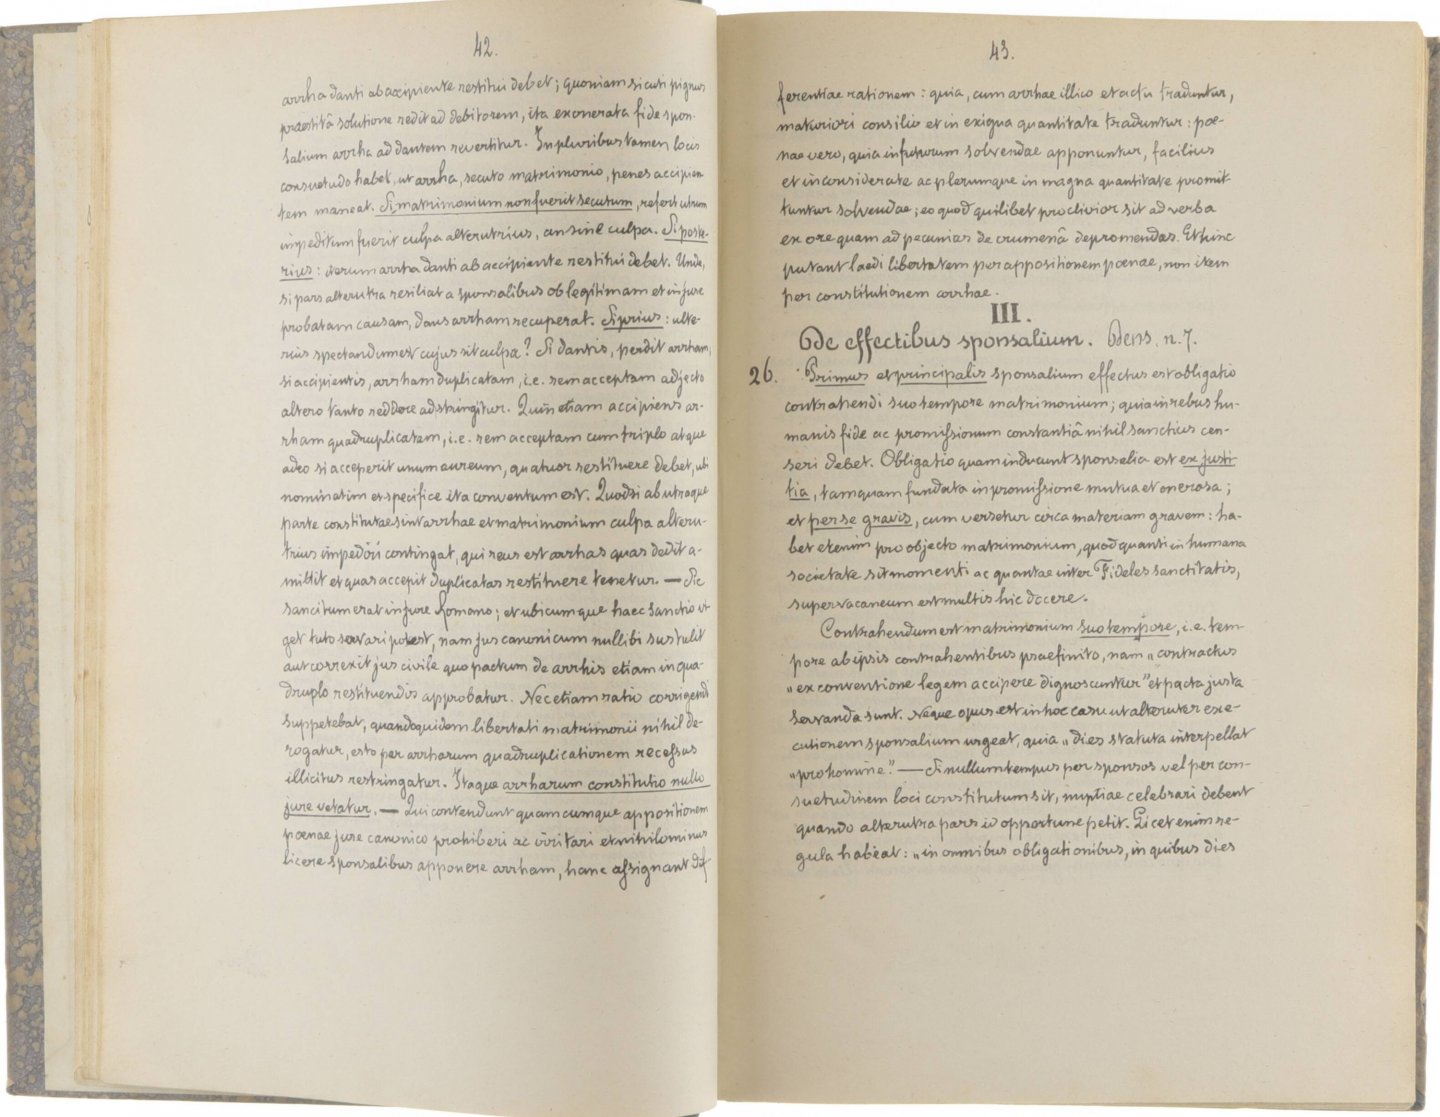 42.
arrha danti ab accipiente restitui debet; quoniam sicuti pignus
praestitâ solutione redit ad debitorem, ita exonerata fide spon-
salium arrha ad dantem revertitur. In pluribus tamen locis
consuetudo habet, ut arrha, secuto matrimonio, penes accipien
tem maneat. Si matrimonium non fuerit secutum, refert utrum
impeditum fuerit culpa alterutrius, an sine culpa. Si poste-
rius: iterum arrha danti ab accipiente restitui debet. Unde,
si pars alterutra resiliat a sponsalibus ob legitimam et in jure
probatam causam, dans arrham recuperat. Si prius: ulte-
rius spectandum est cujus sit culpa? Si dantis, perdit arrham,
si accipientis, arrham duplicatam, i.e. rem acceptam adjecto
altero tanto reddere adstringitur. Quin etiam accipiens ar-
rham quadruplicatam, i.e. rem acceptam cum triplo atque
adeo si acceperit unum aureum, quatuor restituere debet, ubi
nominatim et specifice ita conventum est. Quodsi ab utraque
parte constitutae sint arrhae et matrimonium culpa alteru-
trius impediri contingat, qui reus est arrhas quas dedit a-
mittit et quas accepit duplicatas restituere tenetur. — Sic
sancitum erat in jure Romano; et ubicumque haec sanctio vi
get tuto servari potest, nam jus canonicum nullibi sustulit
aut correxit jus civile quo pactum de arrhis etiam in qua-
druplo restituendis approbatur. Nec etiam ratio corrigendi
suppetebat, quandoquidem libertati matrimonii nihil de-
rogatur, esto per arrharum quadruplicationem recessus
illicitus restringatur. Itaque arrharum constitutio nullo
jure vetatur. — Qui contendunt quamcumque appositionem
poenae jure canonico prohiberi ac irritari et nihilominus
licere sponsalibus apponere arrham, hanc assignant dif
43.
ferentiae rationem: quia, cum arrhae illico et actu traduntur,
maturiori consilio et in exigua quantitate traduntur: poe-
nae vero, quia in futurum solvendae apponuntur, facilius
et inconsiderate ac plerumque in magna quantitate promit
tuntur solvendae; eo quod quilibet proclivior sit ad verba
ex ore quam ad pecunias de crumenâ depromendas. Et hinc
putant laedi libertatem per appositionem poenae, non item
per constitutionem arrhae.
III.
De effectibus sponsalium. Dens. n. 7.
26. Primus et principalis sponsalium effectus est obligatio
contrahendi suo tempore matrimonium; quia in rebus hu-
manis fide ac promissionum constantiâ nihil sanctius cen-
seri debet. Obligatio quam inducunt sponsalia est ex justi
tia, tamquam fundata in promissione mutua et onerosa;
et per se gravis, cum versetur circa materiam gravem: ha-
bet etenim pro objecto matrimonium, quod quanti in humana
societate sit momenti ac quantae inter Fideles sanctitatis,
supervacaneum est multis hic docere.
Contrahendum est matrimonium suo tempore, i.e. tem-
pore ab ipsis contrahentibus praefinito, nam „contractus
„ex conventione legem accipere dignoscuntur" et pacta justa
servanda sunt. Neque opus est in hoc casu ut alteruter exe-
cutionem sponsalium urgeat, quia „dies statuta interpellat
„pro homine." — Si nullum tempus per sponsos vel per con-
suetudinem loci constitutum sit, nuptiae celebrari debent
quando alterutra pars id opportune petit. Licet enim re-
gula habeat: „in omnibus obligationibus, in quibus dies